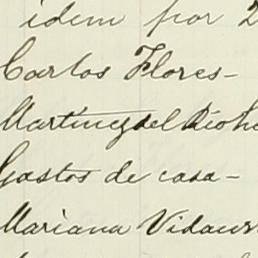 idem por 2
Carlos Flores-
Martinez del Rio h
Gastos de casa-
Mariana Vidaur